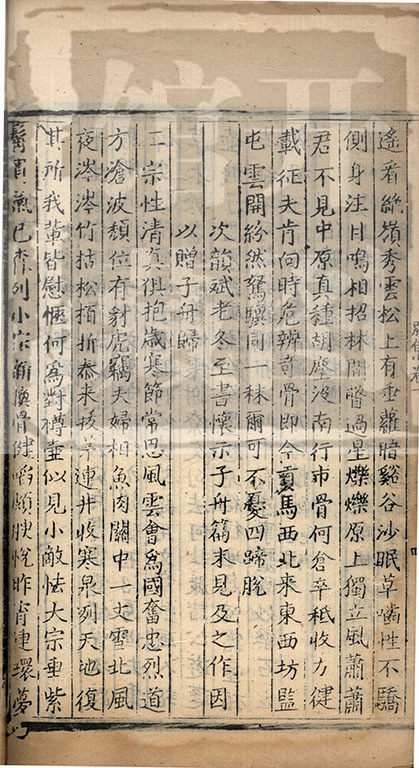 遙看絶嶺秀雲松上有垂蘿暗谿谷沙眠草嚙性不驕
側身注目鳴相招林間瞥過星爍爍原上獨立風蕭蕭
君不見中原真種胡塵没南行市骨何倉卒秪收力健
載征夫肯向時危辨奇骨即今買馬西北来東西坊監
屯雲開紛然駑驥同一秣爾可不憂四蹄脱
次韻斌老冬至書懷示子舟篇末見及之作因
以贈子舟歸
二宗性清真俱抱歳寒節常思風雲會為國奮忠烈道
方滄波頽位有豺虎竊夫婦相魚肉關中一丈雪北風
夜涔涔竹枯松栢折泰来拔茅連井收寒泉冽天地復
其所我輩皆慰愜何為對樽壺似見小敵怯大宗垂紫
髯眉氣已森列小宗新換骨健啗頗腴悅昨宵連環夢